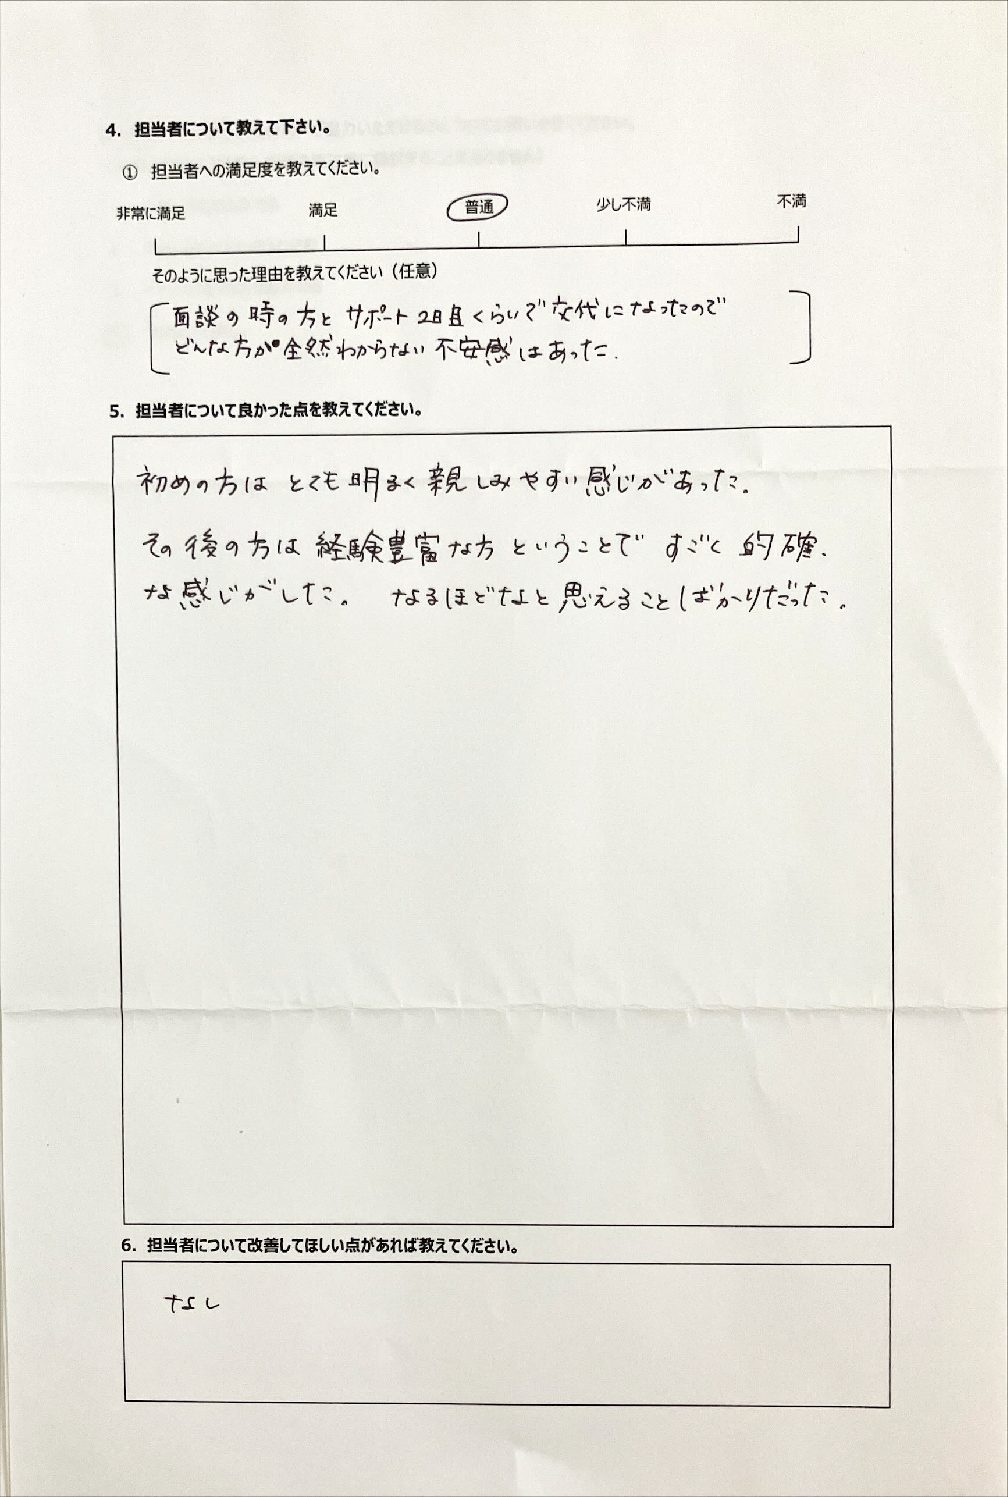 4. 担当者について教えて下さい。
① 担当者への満足度を教えてください。
非常に満足 満足 普通 少し不満 不満
そのように思った理由を教えてください（任意）
面談の時の方と サポート2日目くらいで交代になったので
どんな方か全然わからない不安感はあった.
5. 担当者について良かった点を教えてください。
初めの方は とても明るく親しみやすい感じがあった。
その後の方は 経験豊富な方 ということで すごく 的確
な感じがした。 なるほどなと思えることばかりだった。
6. 担当者について改善してほしい点があれば教えてください。
なし